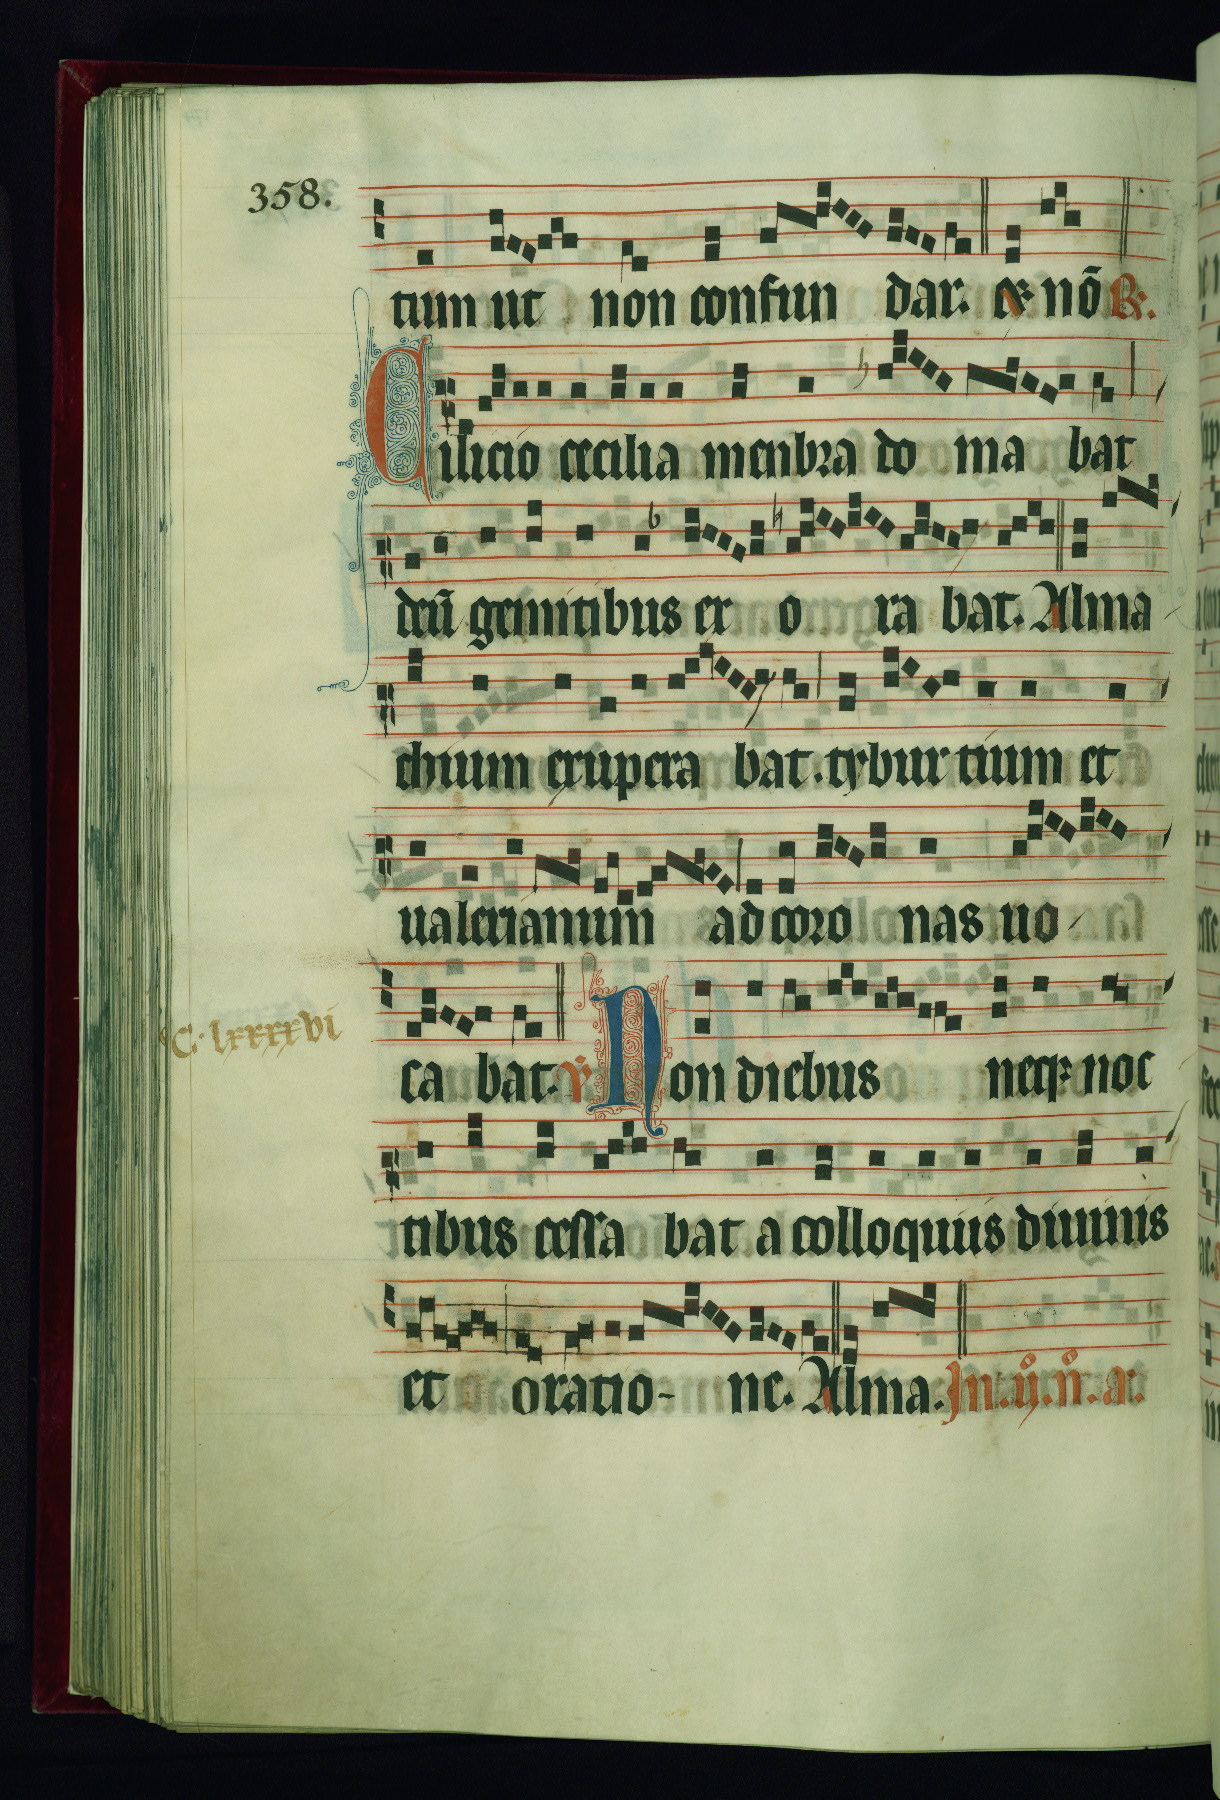 358.
tium ut non confun dar. et nō ℟.
Cilicio cecilia menbra do ma bat
deū gemitibus ex o ra bat. Alma
chium exupera bat. tyburtium et
ualerianum ad coro nas uo
C. lxxxxvi
ca bat. ℣ Non diebus neqꝫ noc
tibus cessa bat a colloquiis diuinis
et oratio- ne. Alma. In. ij. n. a.